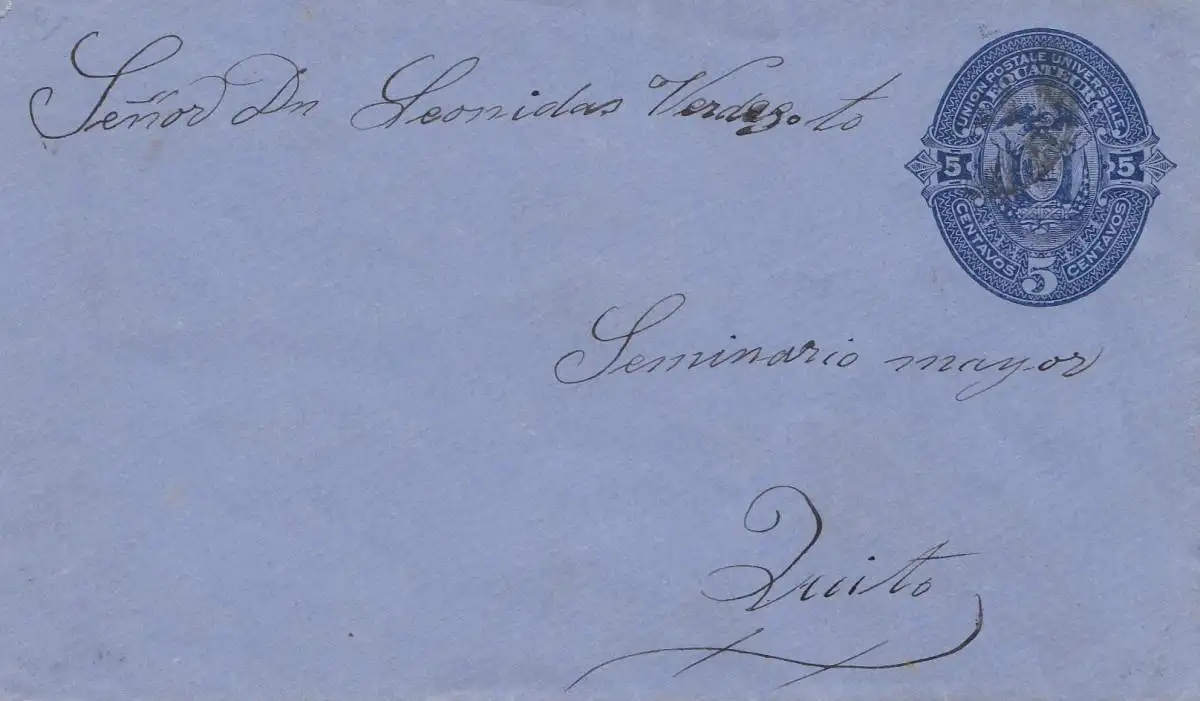 Señor Dn Leonidas Verdezoto
UNION POSTALE UNIVERSELLE
EQUATEUR
5 5
CENTAVOS 5 CENTAVOS
Seminario mayor
Quito